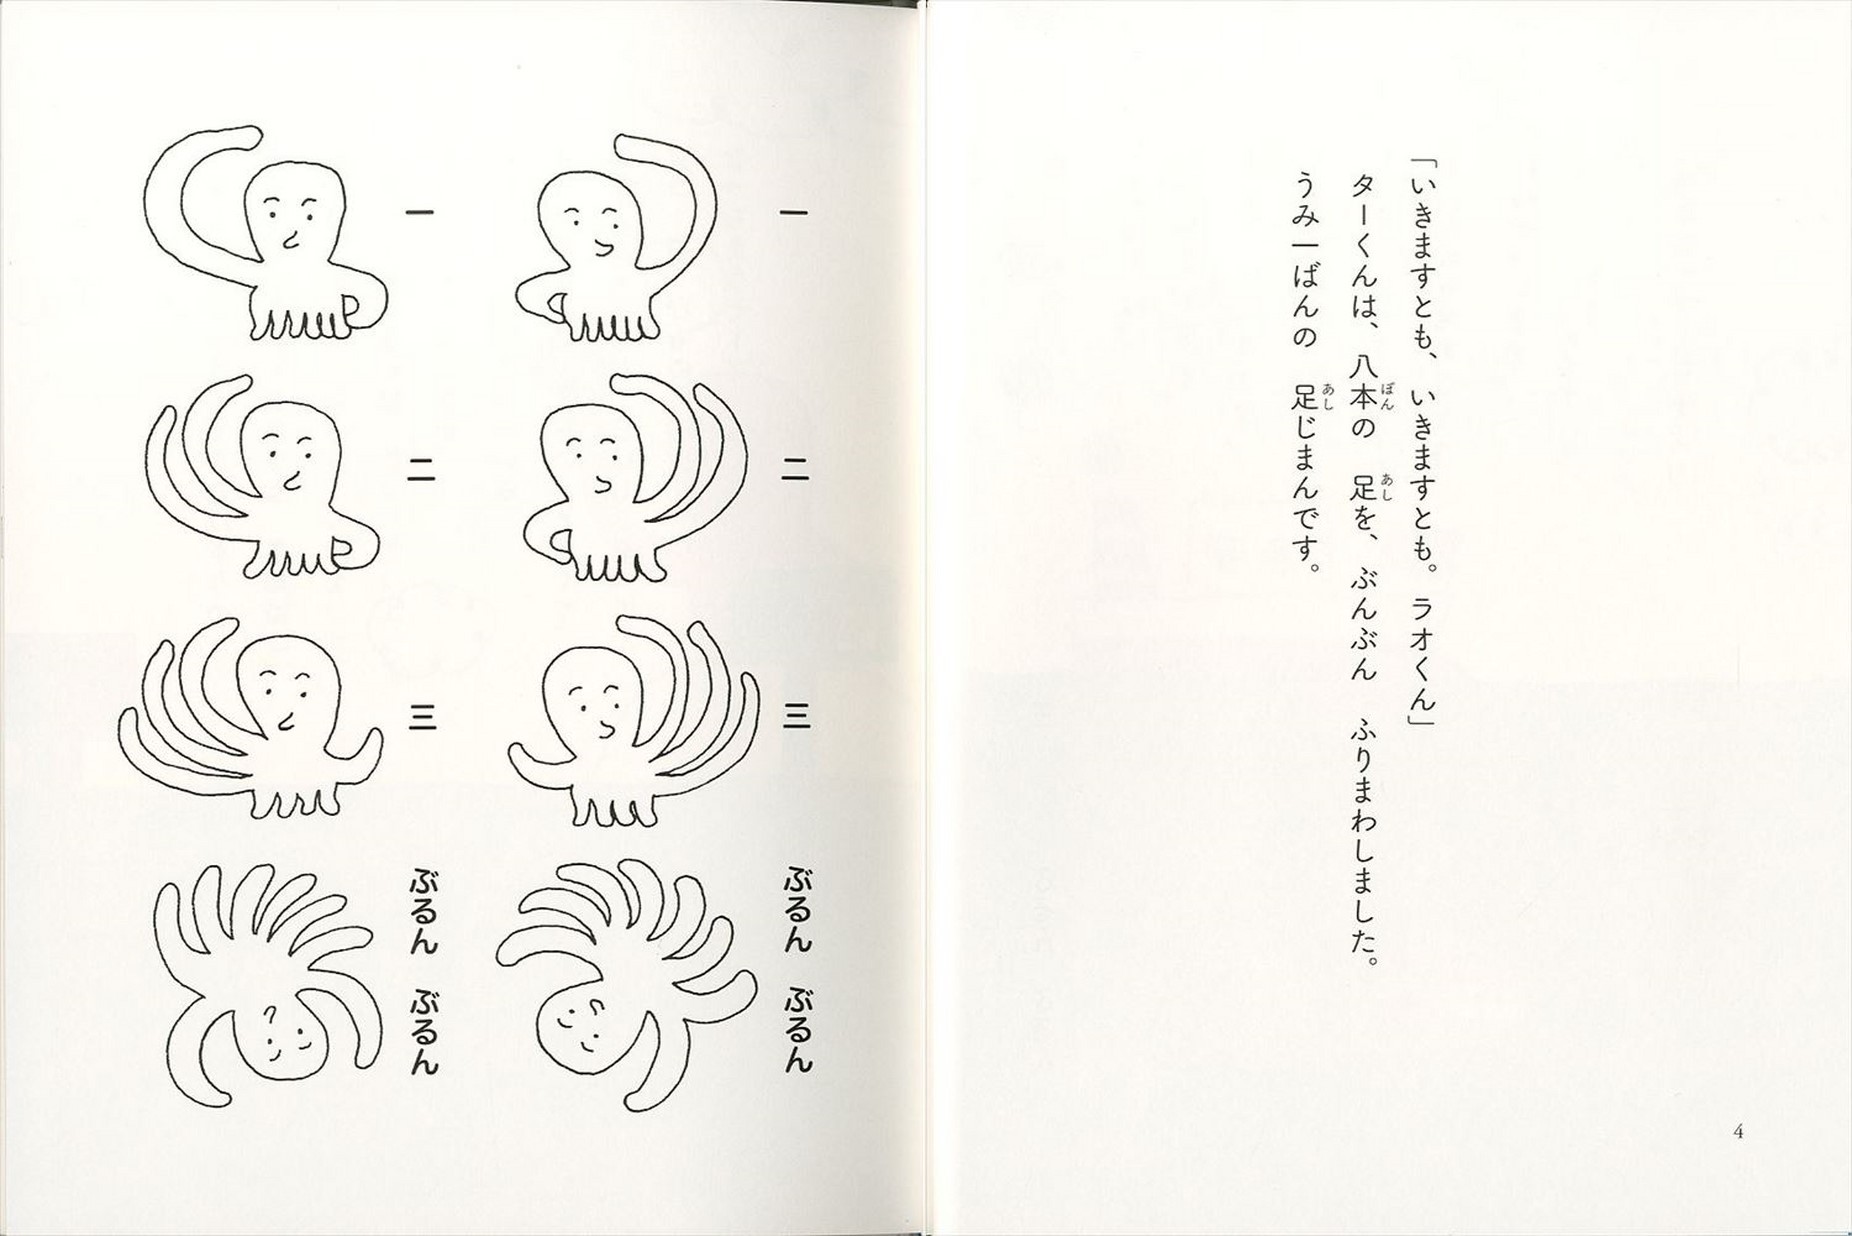 「いきますとも、いきますとも。ラオくん」
ターくんは、八本の　足を、ぶんぶん　ふりまわしました。
うみ一ばんの　足じまんです。
ぼん
あし
あし
4
一
二
三
ぶるん　ぶるん
一
二
三
ぶるん　ぶるん